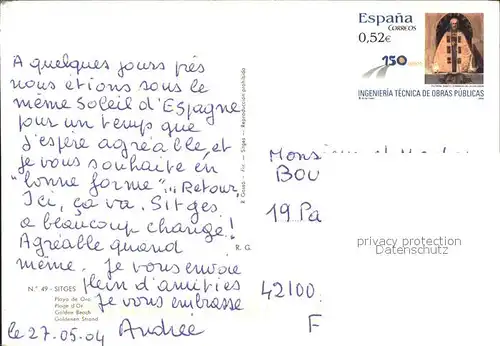 A quelques jours près
nous étions sous le
même Soleil d'Espagne
pour un temps que
j'espère agréable, et
je vous souhaite en
"bonne forme"... Retour
Ici, ça va. Sitges
a beaucoup changé!
Agréable quand
même. Je vous envoie
plein d'amitiés
Je vous embrasse
Andrée
le 27.05.04
N.º 49 - SITGES
Playa de Oro
Plage d'Or
Golden Beach
Goldenen Strand
Reproducción prohibida
Sitges
R. G
España
CORREOS
0,52€
150
INGENIERÍA TÉCNICA DE OBRAS PÚBLICAS
BOU
19 Pa
42100
F
privacy protection
Datenschutz